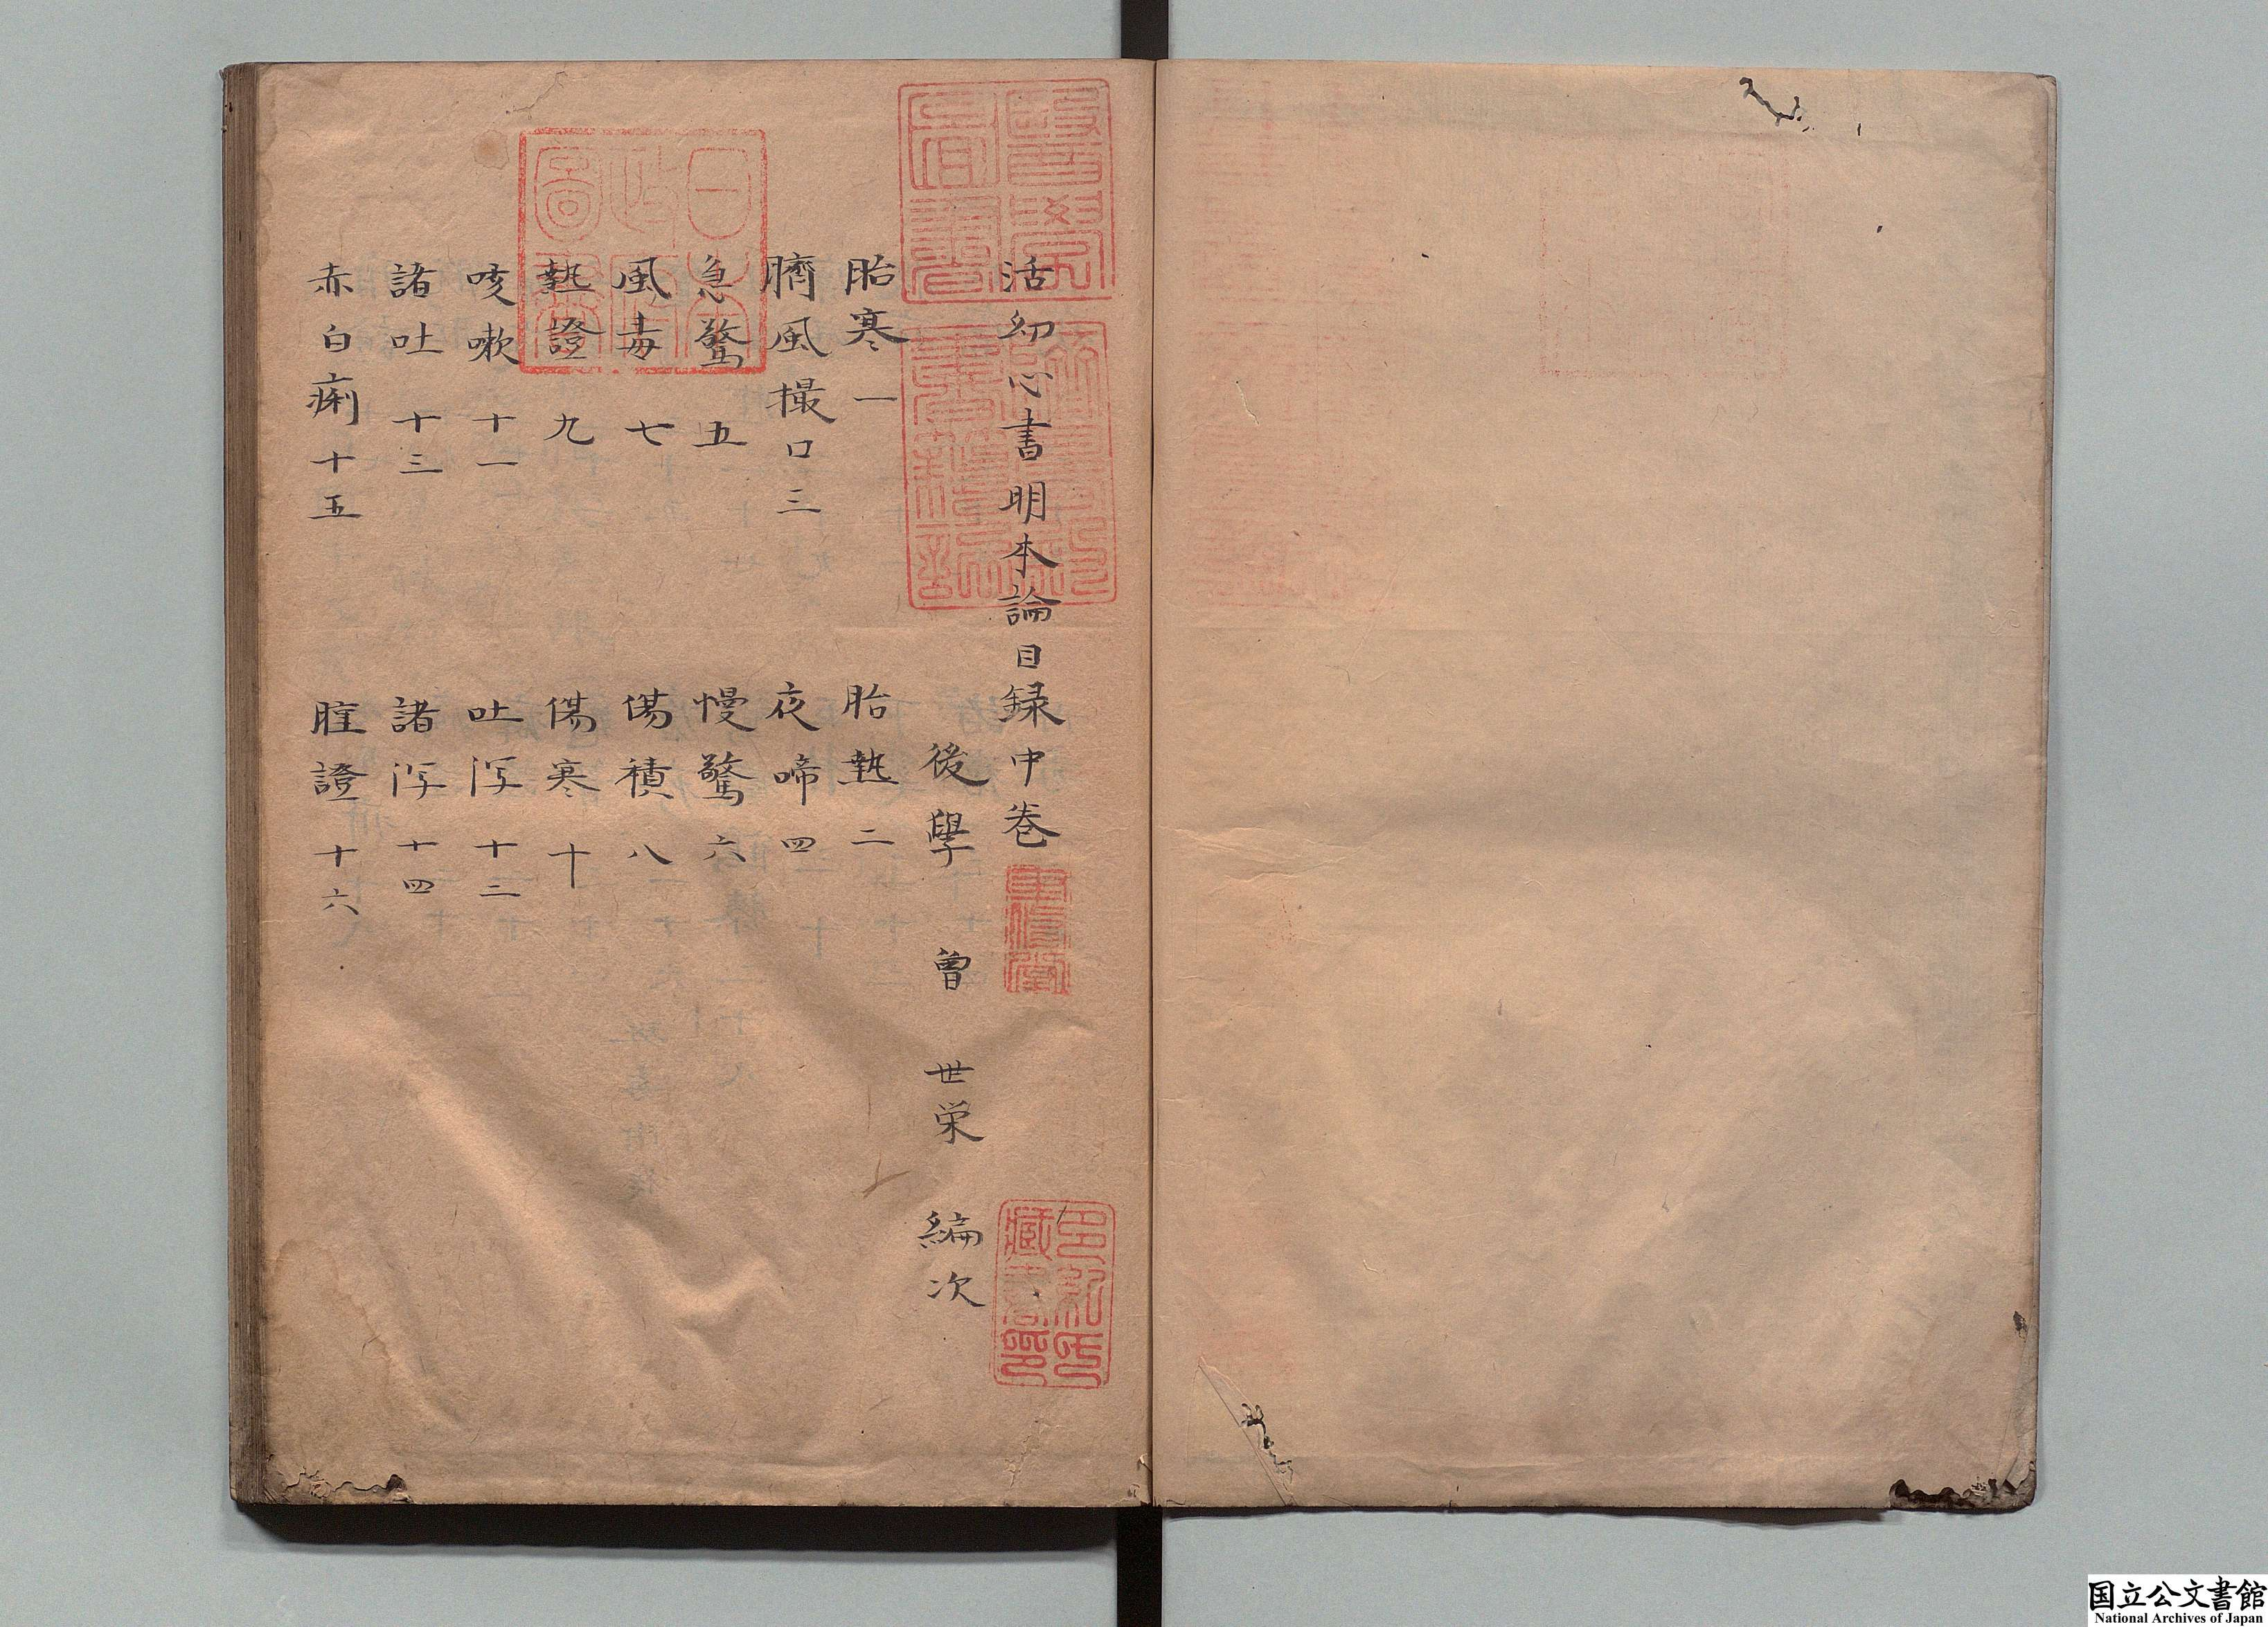 活幼心書明本論目録中巻
後學 曾 世栄 編次
胎寒一 胎熱二
臍風撮口三 夜啼四
急驚五 慢驚六
風毒七 傷積八
熱證九 傷寒十
咳嗽十一 吐泻十二
諸吐十三 諸泻十四
赤白痢十五 腫證十六
醫學圖書
躋壽殿書籍記
日本政府圖書
多紀氏藏書印
国立公文書館
National Archives of Japan